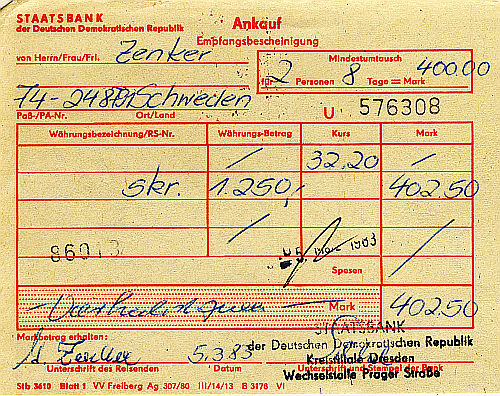 STAATSBANK
der Deutschen Demokratischen Republik
Ankauf
Empfangsbescheinigung
von Herrn/Frau/Frl. Zenker
Mindestumtausch
für 2 Personen 8 Tage = Mark 400.00
Schweden
Paß-/PA-Nr. Ort/Land
U 576308
Währungsbezeichnung/RS-Nr. Währungs-Betrag Kurs Mark
/ 32,20 /
skr. 1.250,- 402.50
/ /
Spesen
Mark 402.50
Marbetrag erhalten:
Zenker 5.3.83
STAATSBANK
der Deutschen Demokratischen Republik
Kreisfiliale Dresden
Wechselstelle Prager Straße
Unterschrift des Reisenden Datum Unterschrift und Stempel der Bank
Stb 3610 Blatt 1 VV Freiberg Ag 307/80 III/14/13 B 3178 VI